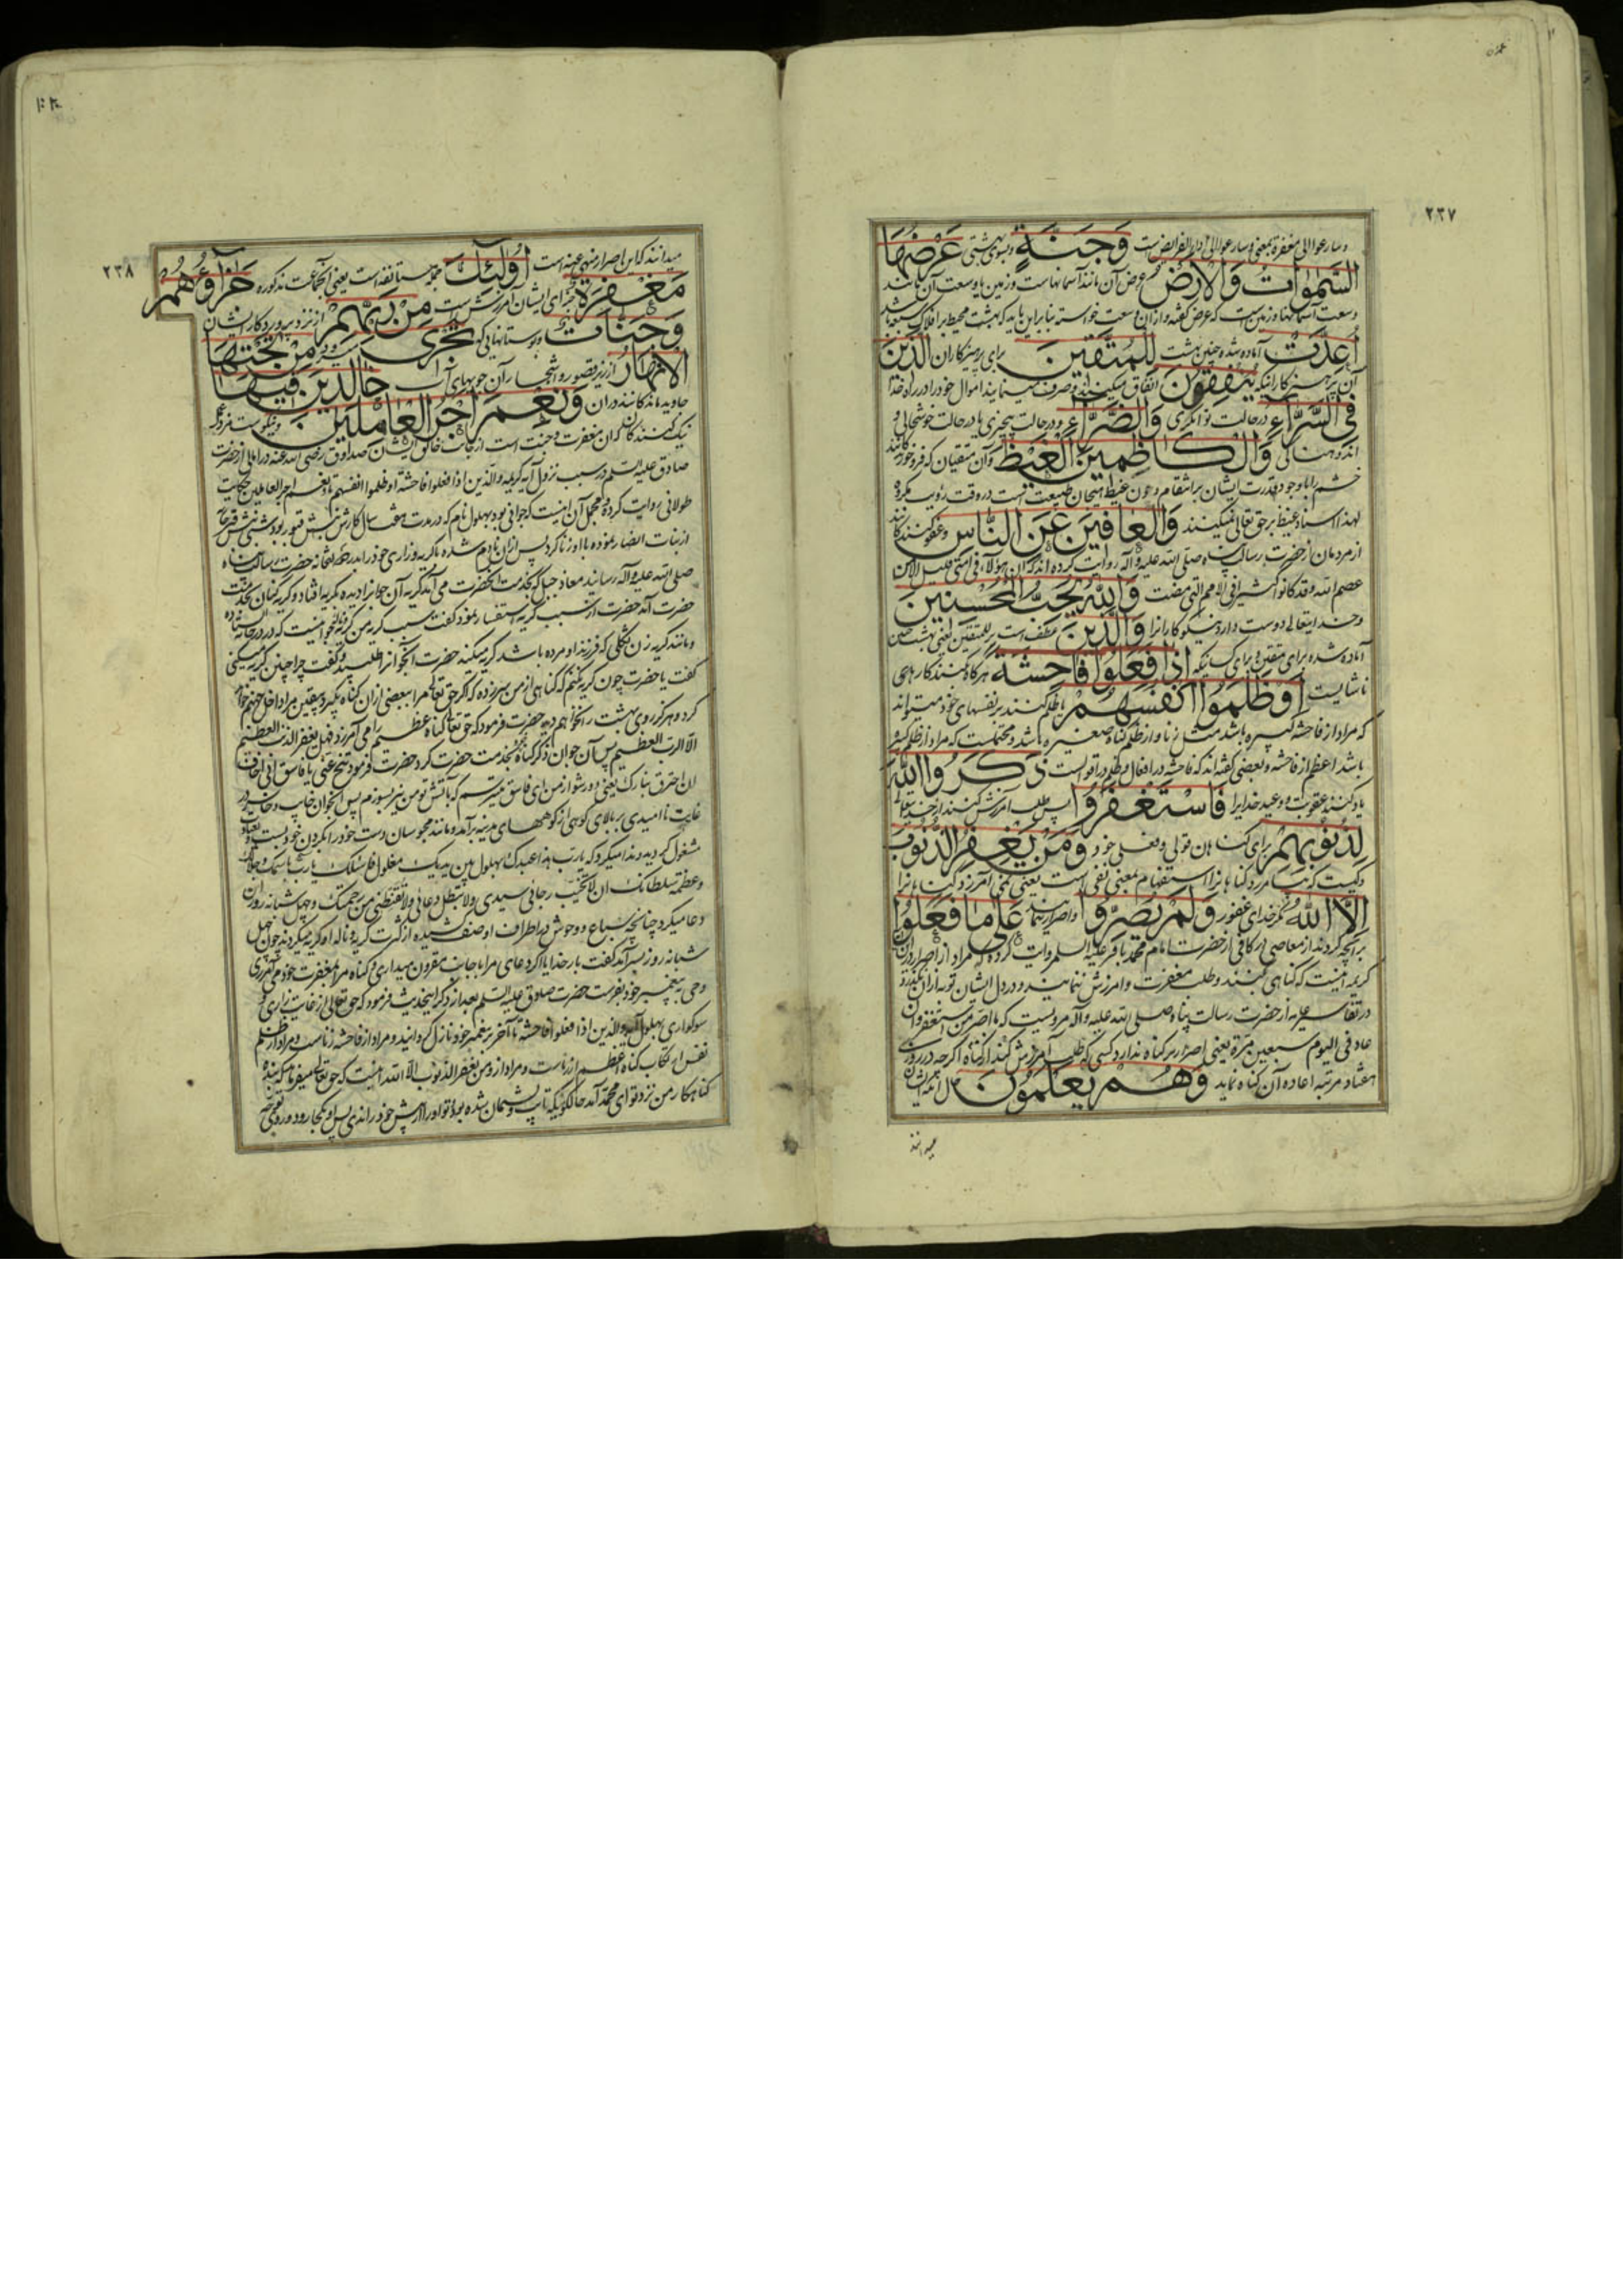 ۲۳۷
و سارعوا الی مغفرة بمعنی و سارعوا الی اداء الفرائض است وَجَنَّةٍ و بسوی بهشتی عَرْضُهَا
السَّمٰوَاتُ وَالْاَرْضُ عرض آن مانند آسمانهاست و زمین یا وسعت آن مانند
وسعت آسمانها و زمین است که عرض گفته و ازان وسعت خواسته بنابراین باید که بهشت محیط بر افلاک سبعه باشد
اُعِدَّتْ آماده شده چنین بهشت لِلْمُتَّقِينَ برای پرهیزکاران الَّذِينَ
آن پرهیزکارانیکه يُنْفِقُونَ انفاق میکنند و صرف مینمایند اموال خود را در راه خدا
فِي السَّرَّاءِ در حالت توانگری وَالضَّرَّاءِ و در حالت بیچیزی یا در حالت خوشحالی و
اندوهناکی وَالْكَاظِمِينَ الْغَيْظَ و آن متقیان که فرو خورندگانند
خشم را با وجود قدرت ایشان بر انتقام و چون غیظ هیجان طبیعت است در وقت رؤیت مکروه
لهذا اسناد غیظ بر حق تعالی نمیکنند وَالْعَافِينَ عَنِ النَّاسِ و عفو کنندگانند
از مردمان از حضرت رسالت پناه صلی الله علیه و آله روایت کرده اند که ان هؤلاء فی امتی قلیل الا من
عصم الله و قد کانوا کثیرا فی الامم التی مضت وَاللّٰهُ يُحِبُّ الْمُحْسِنِينَ
و خدایتعالی دوست دارد نیکوکارانرا وَالَّذِينَ عطف است بر للمتقین یعنی بهشت چنین
آماده شده برای متقین و برای کسانیکه اِذَا فَعَلُوا فَاحِشَةً هرگاه کنند کارهای
ناشایست اَوْ ظَلَمُوا اَنْفُسَهُمْ یا ظلم کنند بر نفسهای خود میتواند
که مراد از فاحشه کبیره باشد مثل زنا و از ظلم گناه صغیره باشد و محتملست که مراد از ظلم کبیره
باشد اعظم از فاحشه و بعضی گفته اند که فاحشه در افعال و ظلم در اقوالست ذَكَرُوا اللّٰهَ
یاد کنند عقوبت و وعید خدایرا فَاسْتَغْفَرُوا پس طلب آمرزش کنند از خدایتعالی
لِذُنُوبِهِمْ برای گناهان قولی و فعلی خود وَمَنْ يَغْفِرُ الذُّنُوبَ
و کیست که بیامرزد گناهانرا استفهام بمعنی نفی است یعنی نمی آمرزد گناهانرا
اِلَّا اللّٰهُ مگر خدای غفور وَلَمْ يُصِرُّوا و اصرار ننمایند عَلٰى مَا فَعَلُوا
بر آنچه کردند از معاصی در کافی از حضرت امام محمد باقر علیه السلم روایت کرده که مراد از اصرار در این
کریمه اینست که گناهی کنند و طلب مغفرت و آمرزش ننمایند و در دل ایشان توبه ازان نگذرد
در تفاسیر عامه از حضرت رسالت پناه صلی الله علیه و آله مرویست که ما اصر من استغفر و ان
عاد فی الیوم سبعین مرة یعنی اصرار بر گناه ندارد کسی که طلب آمرزش کند از گناه اگرچه در روزی
هفتاد مرتبه اعاده آن گناه نماید وَهُمْ يَعْلَمُونَ حال آنکه ایشان
میدانند
۲۳۸
میدانند که این اصرار منهی عنه است اُولٰئِكَ جمله مستانفه است یعنی آنجماعت مذکوره جَزَاؤُهُمْ
مَغْفِرَةٌ جزای ایشان آمرزش است مِنْ رَبِّهِمْ از نزد پروردگار ایشان
وَجَنَّاتٌ و بوستانهایی که تَجْرِي میرود مِنْ تَحْتِهَا
الْاَنْهَارُ از زیر قصور و اشجار آن جویهای آب خَالِدِينَ فِيهَا
جاوید ماندگانند دران وَنِعْمَ اَجْرُ الْعَامِلِينَ و نیکوست مزد عمل
نیک کنندگان که آن مغفرت و جنت است از جانب خالق ایشان صدوق رضی الله عنه در امالی از حضرت
صادق علیه السلم در سبب نزول آیه کریمه والذین اذا فعلوا فاحشة او ظلموا انفسهم تا و نعم اجر العاملین حکایت
طولانی روایت کرده و مجمل آن اینست که جوانی بود بهلول نام که در مدت هفت سال کارش نبش قبور بود شبی نبش قبر
از بنات انصار نموده با او زنا کرد پس ازان نادم شده با گریه و زاری خود را بدر خانه حضرت رسالت پناه
صلی الله علیه و آله رسانید معاذ جبل که بخدمت آنحضرت می آمد گریه آن جوانرا دیده بگریه افتاد و گریه کنان بخدمت
حضرت آمد حضرت از سبب گریه استفسار نمود گفت سبب گریه من گریه آنجوانیست که در در خانه ایستاده
و مانند گریه زن ثکلی که فرزند او مرده باشد گریه میکند حضرت آنجوانرا طلبید و گفت چرا چنین گریه میکنی
گفت یا حضرت چون گریه نکنم که گناهی از من سرزده که اگر حق تعالی مرا ببعضی ازان گناه بگیرد بیقین مرا داخل جهنم خواهد
کرد و هرگز روی بهشت را نخواهم دید حضرت فرمود که حق تعالی گناه عظیم را می آمرزد فهل یغفر الذنب العظیم
الا الرب العظیم پس آن جوان ذکر گناه بخدمت حضرت کرد حضرت فرمود تنح عنی یا فاسق انی اخاف
ان احترق بنارک یعنی دور شو از من ای فاسق میترسم که بآتش تو من نیز بسوزم پس آنجوان خایب و خاسر در
غایت ناامیدی بر بالای کوهی از کوههای مدینه برآمد و مانند محبوسان دست خود را بگردن خود بست و بعبادت
مشغول گردید و ندا میکرد که یا رب هذا عبدک بهلول بین یدیک مغلول فاسئلک یا رب باسمک و جلالک
و عظمة سلطانک ان لا تخیب رجائی سیدی و لا تبطل دعائی و لا تقنطنی من رحمتک و چهل شبانه روز این
دعا میکرد چنانچه سباع و وحوش در اطراف او صف کشیده از کثرت گریه و ناله او گریه میکردند چون چهل
شبانه روز بسر آمد گفت بار خدایا اگر دعای مرا باجابت مقرون میداری و گناه مرا بمغفرت خود می آمرزی
وحی به پیغمبر خود بفرست حضرت صادق علیه السلم بعد از ذکر اینحدیث فرمود که حق تعالی از غایت زاری و
سوگواری بهلول آیه والذین اذا فعلوا فاحشة تا آخر بر پیغمبر خود نازل گردانید و مراد از فاحشه زناست و مراد از ظلم
نفس ارتکاب گناه اعظم از زناست و مراد از و من یغفر الذنوب الا الله اینست که حق تعالی میفرماید که بنده
گناهکار من نزد تو ای محمد آمد حالکونیکه تایب و پشیمان شده بود تو او را از پیش خود راندی پس او بکجا رود و روی